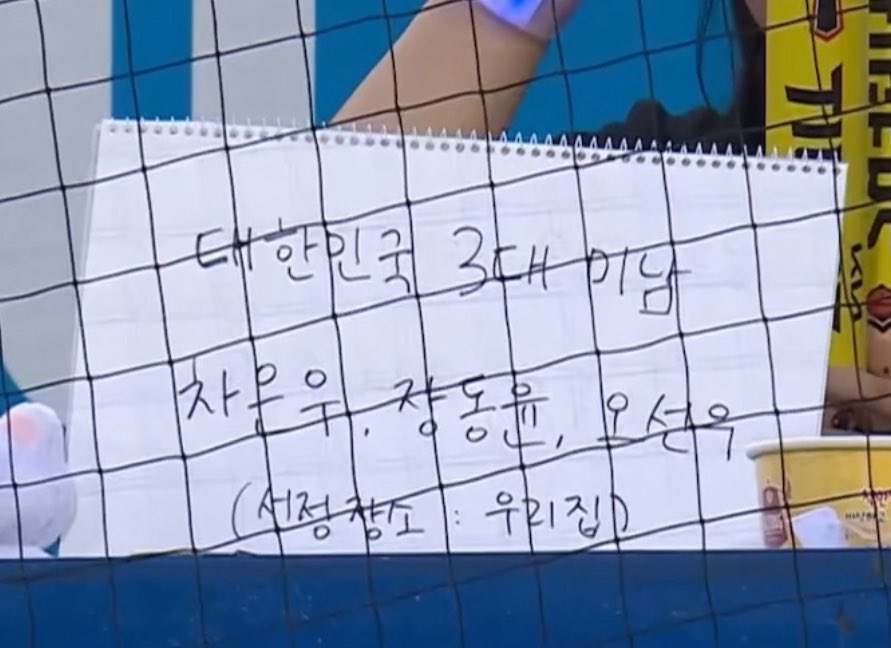 대한민국 3대 미남
차은우, 장동윤, 오선우
(서정장소 : 우리집)